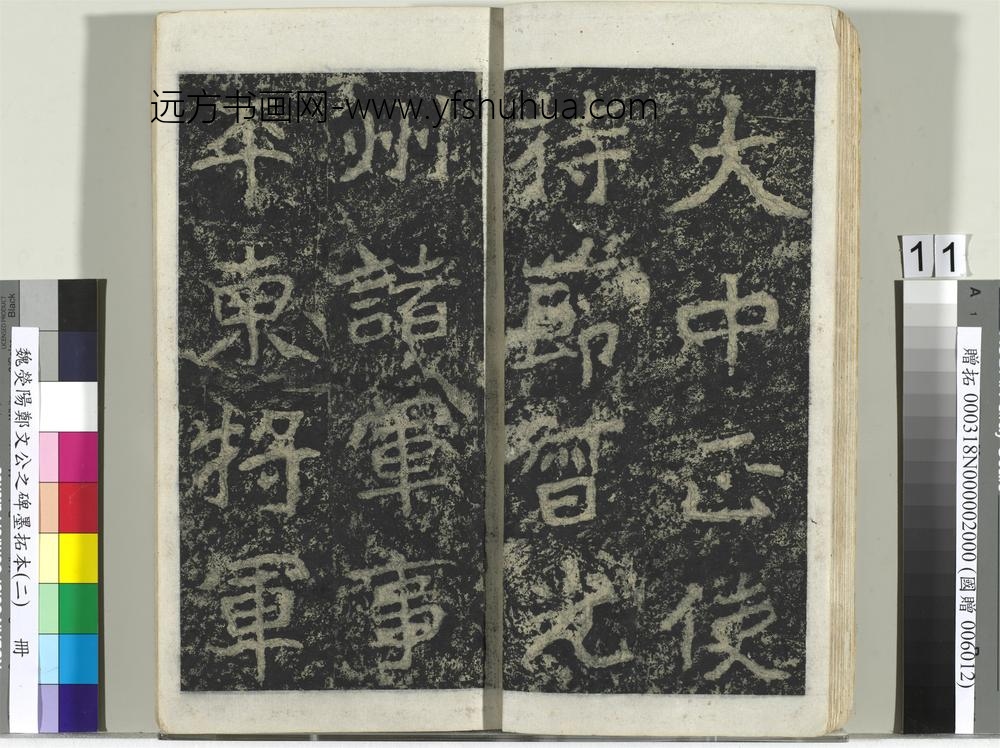 远方书画网-www.yfshuhua.com
大中正使
持節督光
州諸軍事
平東將軍
11
贈拓 000318N000002000 (國贈 006012)
魏滎陽鄭文公之碑墨拓本(二) 冊
Black
A
1